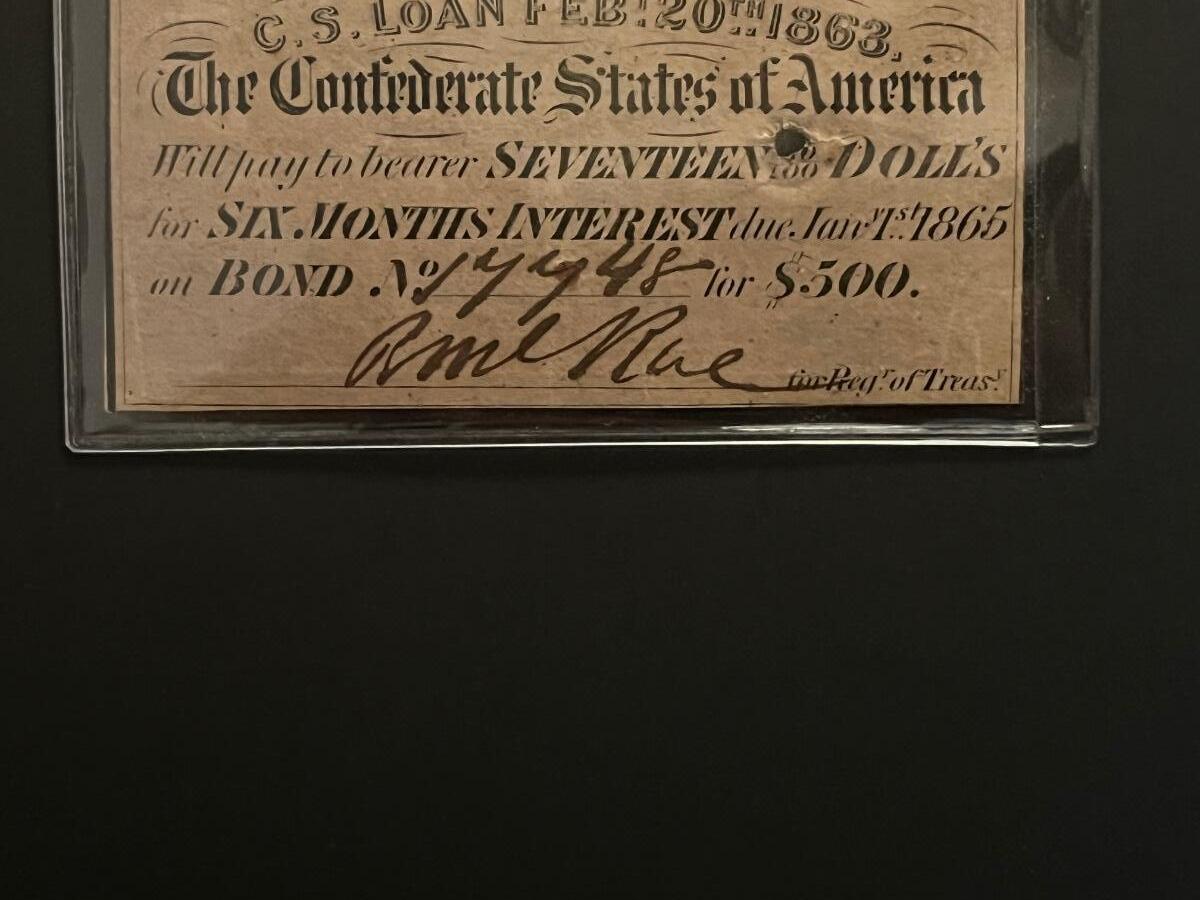 C.S. LOAN FEB. 20TH 1863.
The Confederate States of America
Will pay to bearer SEVENTEEN 50/100 DOLL'S
for SIX MONTHS INTEREST due Jany 1st 1865
on BOND No 17748 for $500.
Rae for Regr of Treasy